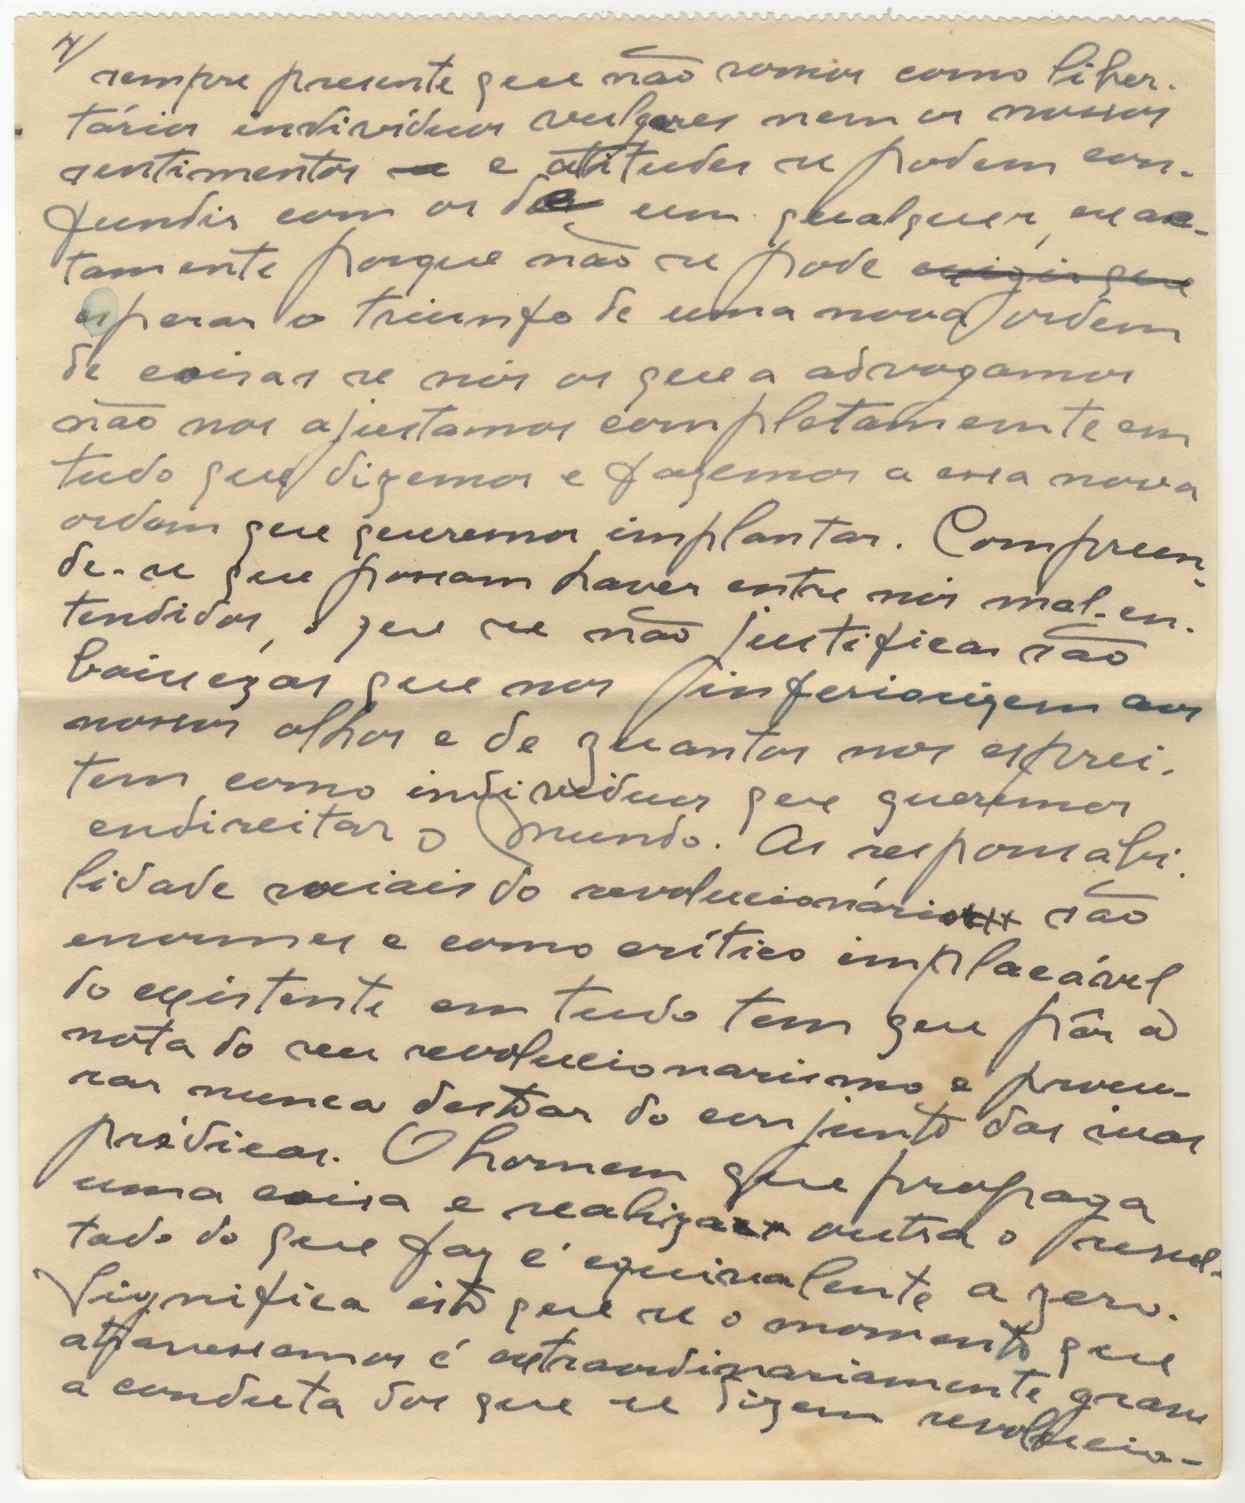 7/
sempre presente que não somos como liber-
tários indivíduos vulgares nem os nossos
sentimentos e atitudes se podem con-
fundir com os de um qualquer, exac-
tamente porque não se pode exigir que
esperar o triunfo de uma nova ordem
de coisas se nós os que a advogamos
não nos ajustamos completamente em
tudo que dizemos e fazemos a essa nova
ordem que queremos implantar. Compreen-
de-se que possam haver entre nós mal-en-
tendidos, o que se não justifica são
baixezas que nos inferiorizem aos
nossos olhos e de quantos nos esprei-
tem como indivíduos que queremos
endireitar o mundo. As responsabi-
lidade sociais do revolucionário são
enormes e como crítico implacável
do existente em tudo tem que pôr a
nota do seu revolucionarismo e procu-
rar nunca destoar do conjunto das suas
prédicas. O homem que propaga
uma coisa e realiza outra o resul-
tado do que faz é equivalente a zero.
Significa isto que se o momento que
atravessamos é extraordinariamente grave
a conduta dos que se dizem revolucio-